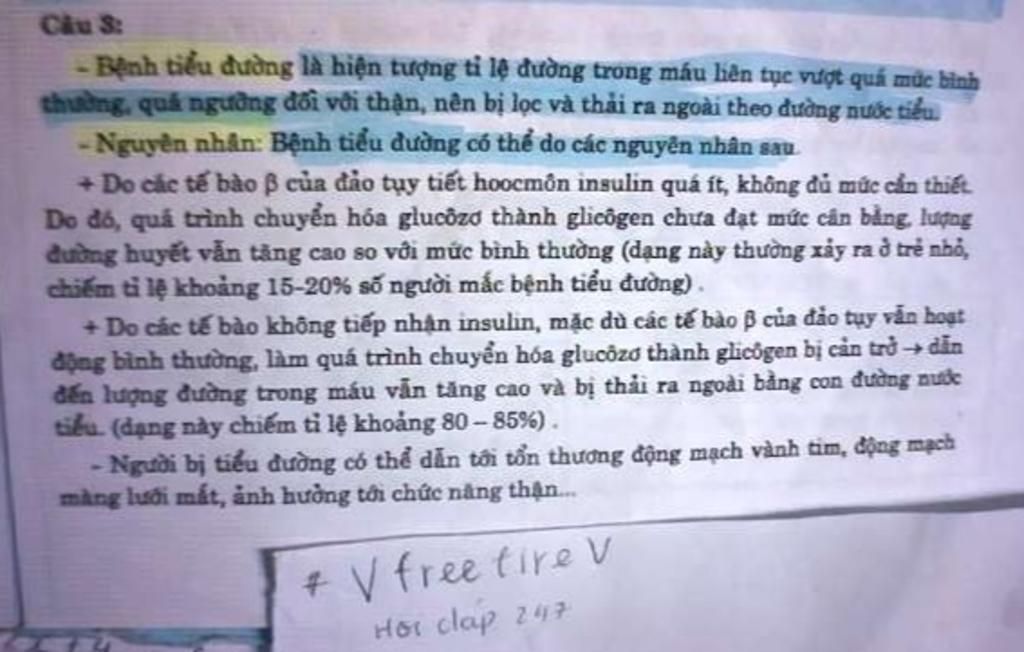 Câu 3:
- Bệnh tiểu đường là hiện tượng tỉ lệ đường trong máu liên tục vượt quá mức bình
thường, quá ngưỡng đối với thận, nên bị lọc và thải ra ngoài theo đường nước tiểu.
- Nguyên nhân: Bệnh tiểu đường có thể do các nguyên nhân sau.
+ Do các tế bào β của đảo tụy tiết hoocmôn insulin quá ít, không đủ mức cần thiết.
Do đó, quá trình chuyển hóa glucôzơ thành glicôgen chưa đạt mức cân bằng, lượng
đường huyết vẫn tăng cao so với mức bình thường (dạng này thường xảy ra ở trẻ nhỏ,
chiếm tỉ lệ khoảng 15-20% số người mắc bệnh tiểu đường).
+ Do các tế bào không tiếp nhận insulin, mặc dù các tế bào β của đảo tụy vẫn hoạt
động bình thường, làm quá trình chuyển hóa glucôzơ thành glicôgen bị cản trở → dẫn
đến lượng đường trong máu vẫn tăng cao và bị thải ra ngoài bằng con đường nước
tiểu. (dạng này chiếm tỉ lệ khoảng 80 – 85%).
- Người bị tiểu đường có thể dẫn tới tổn thương động mạch vành tim, động mạch
màng lưới mắt, ảnh hưởng tới chức năng thận...
V free fire V
Hoi đáp 247